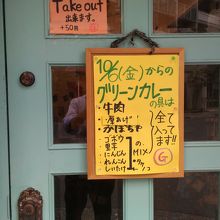 Take out
出来ます。
+50円
10/6(金)からの
グリーンカレー
の具は
・牛肉
・厚あげ
・かぼちゃ
・ゴボウ
・里芋
・にんじん
・れんこん
・しいたけ
1の
MIX
全て
入ってます!!
G